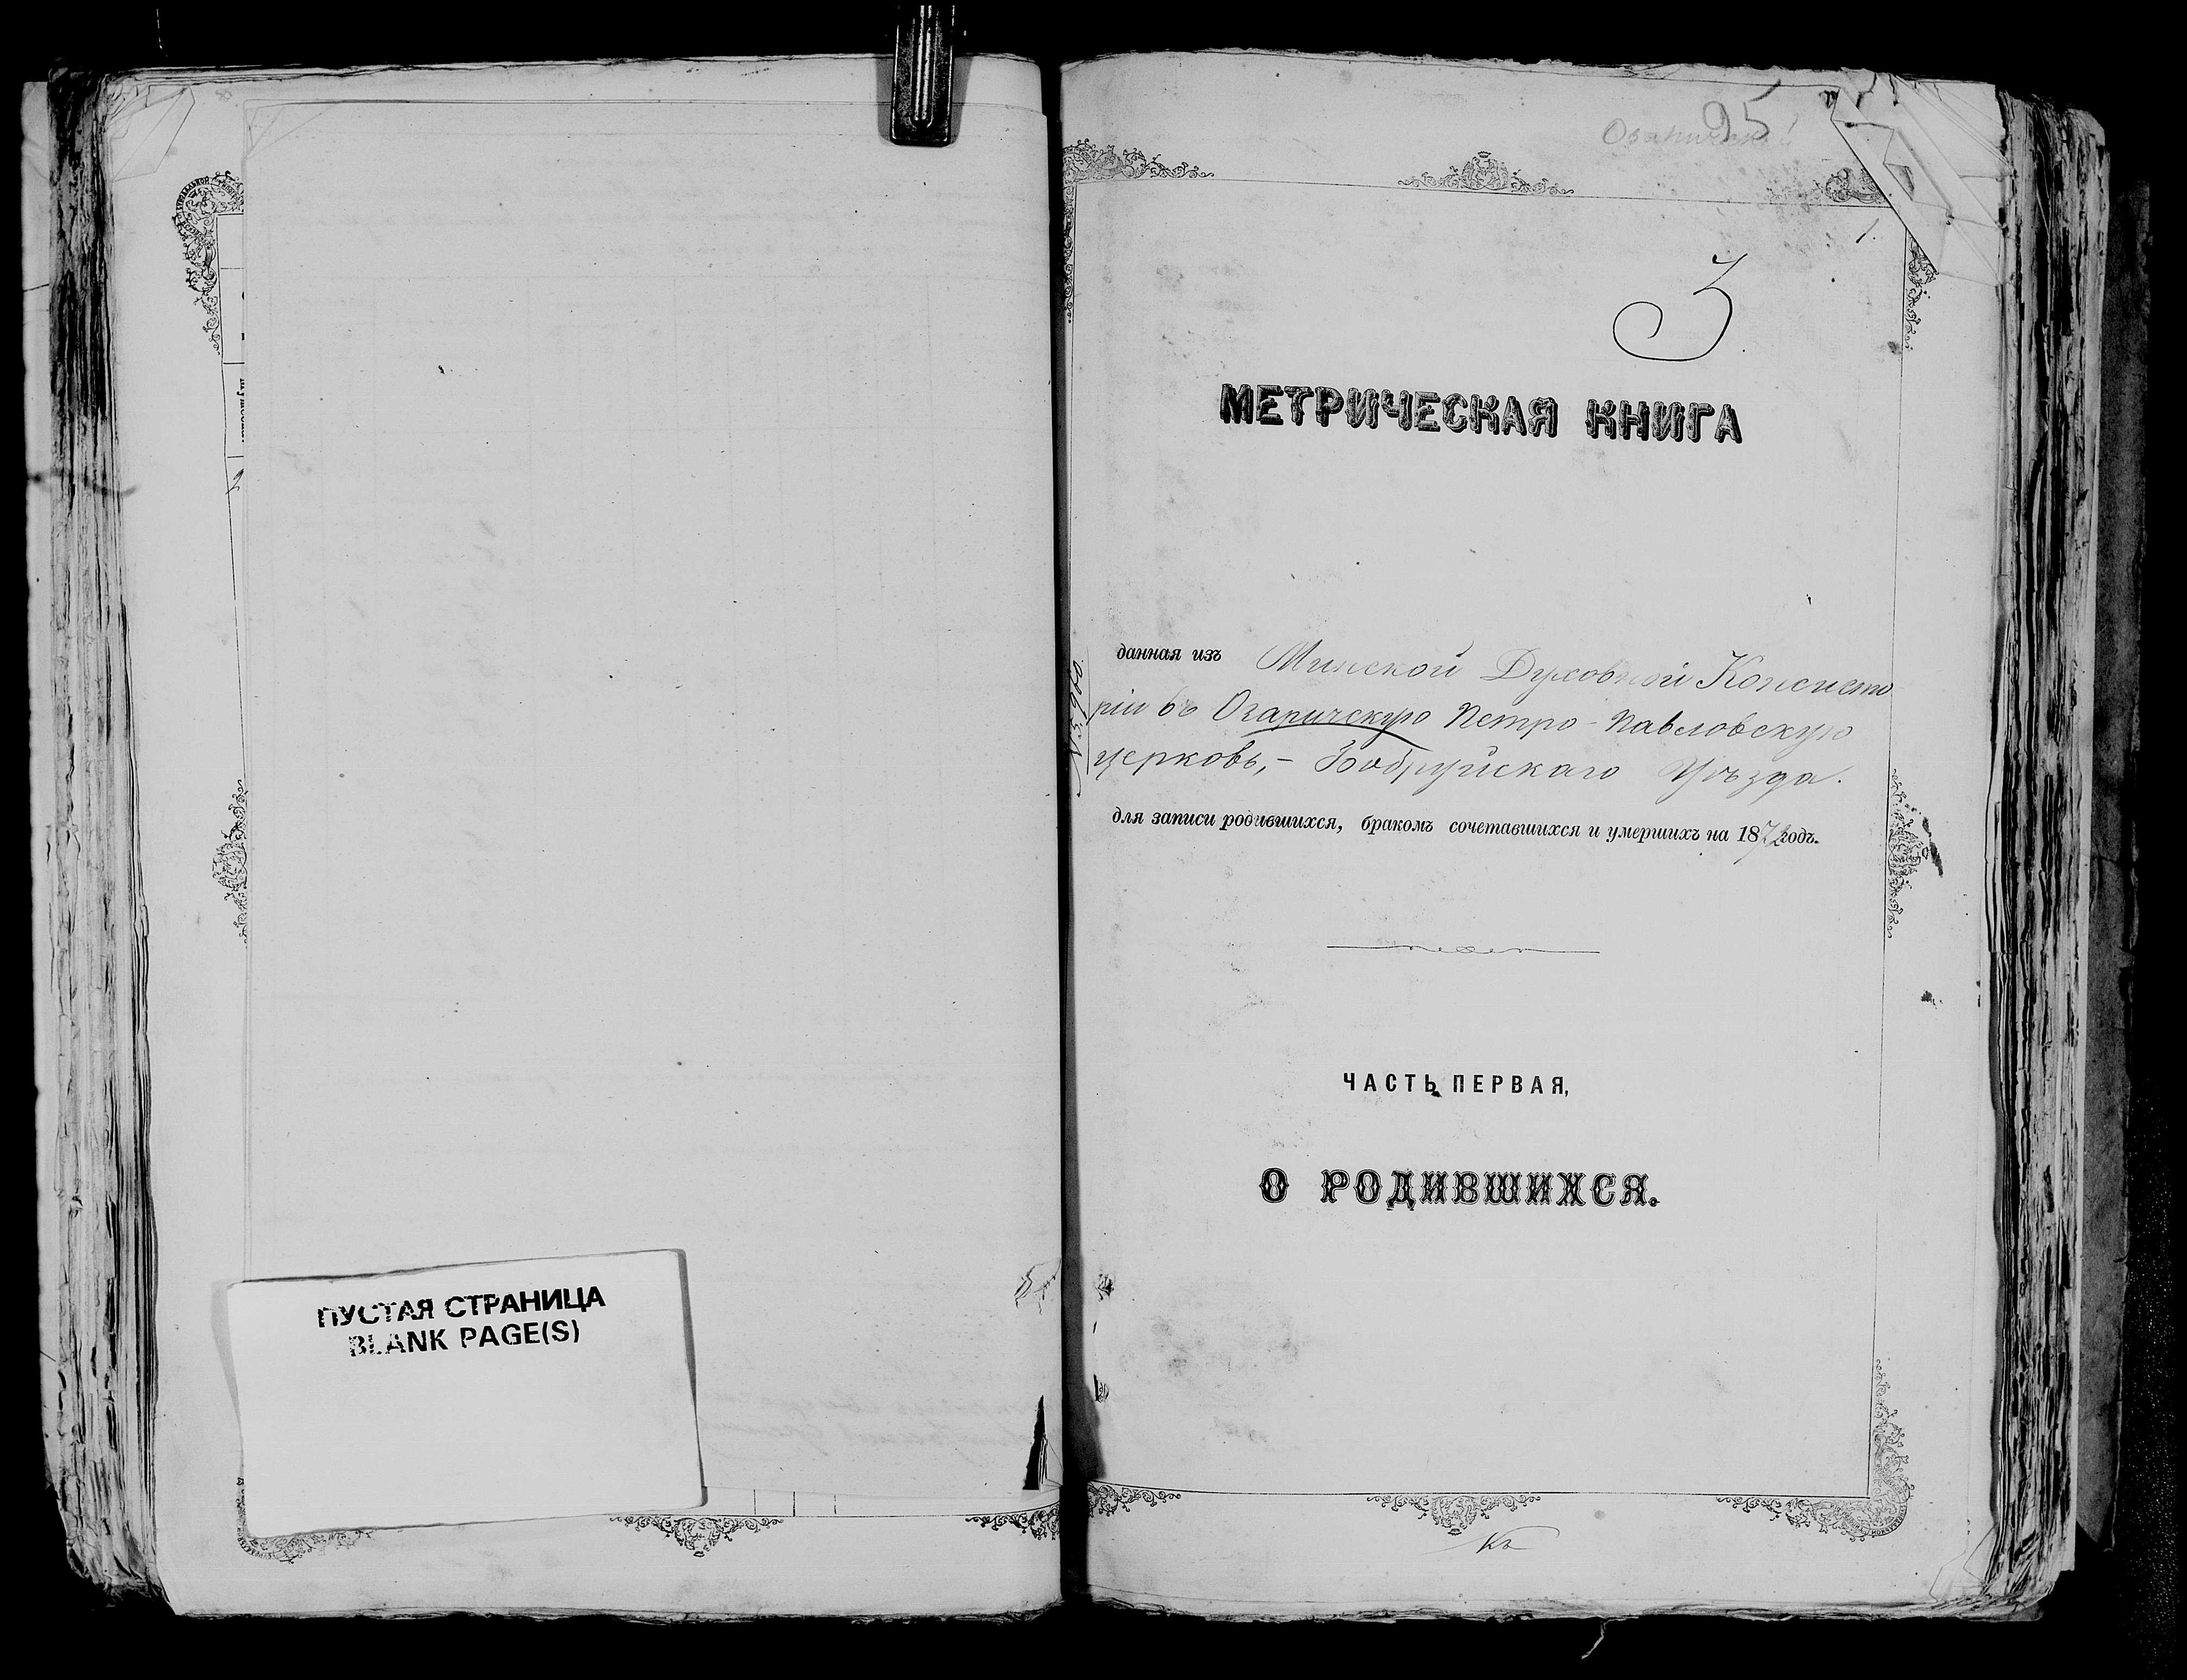 ПУСТАЯ СТРАНИЦА
BLANK PAGE(S)
95
1.
3.
МЕТРИЧЕСКАЯ КНИГА
данная изъ Минской Духовной Консисто
ріи въ Озаричскую Петро-Павловскую
церковь,- Бобруйскаго Уѣзда.
для записи родившихся, бракомъ сочетавшихся и умершихъ на 1872 годъ.
ЧАСТЬ ПЕРВАЯ,
О РОДИВШИХСЯ.